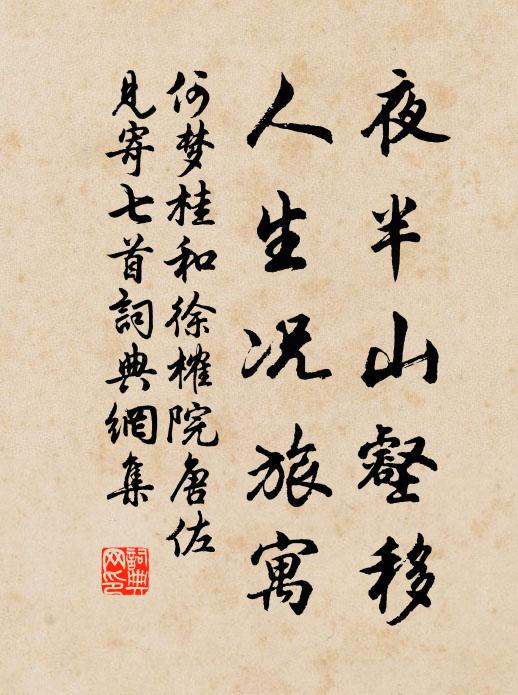 夜半山壑移
人生况旅寓
何梦桂和徐榷院唐佐
見寄七首詞典網集
詞典
网印